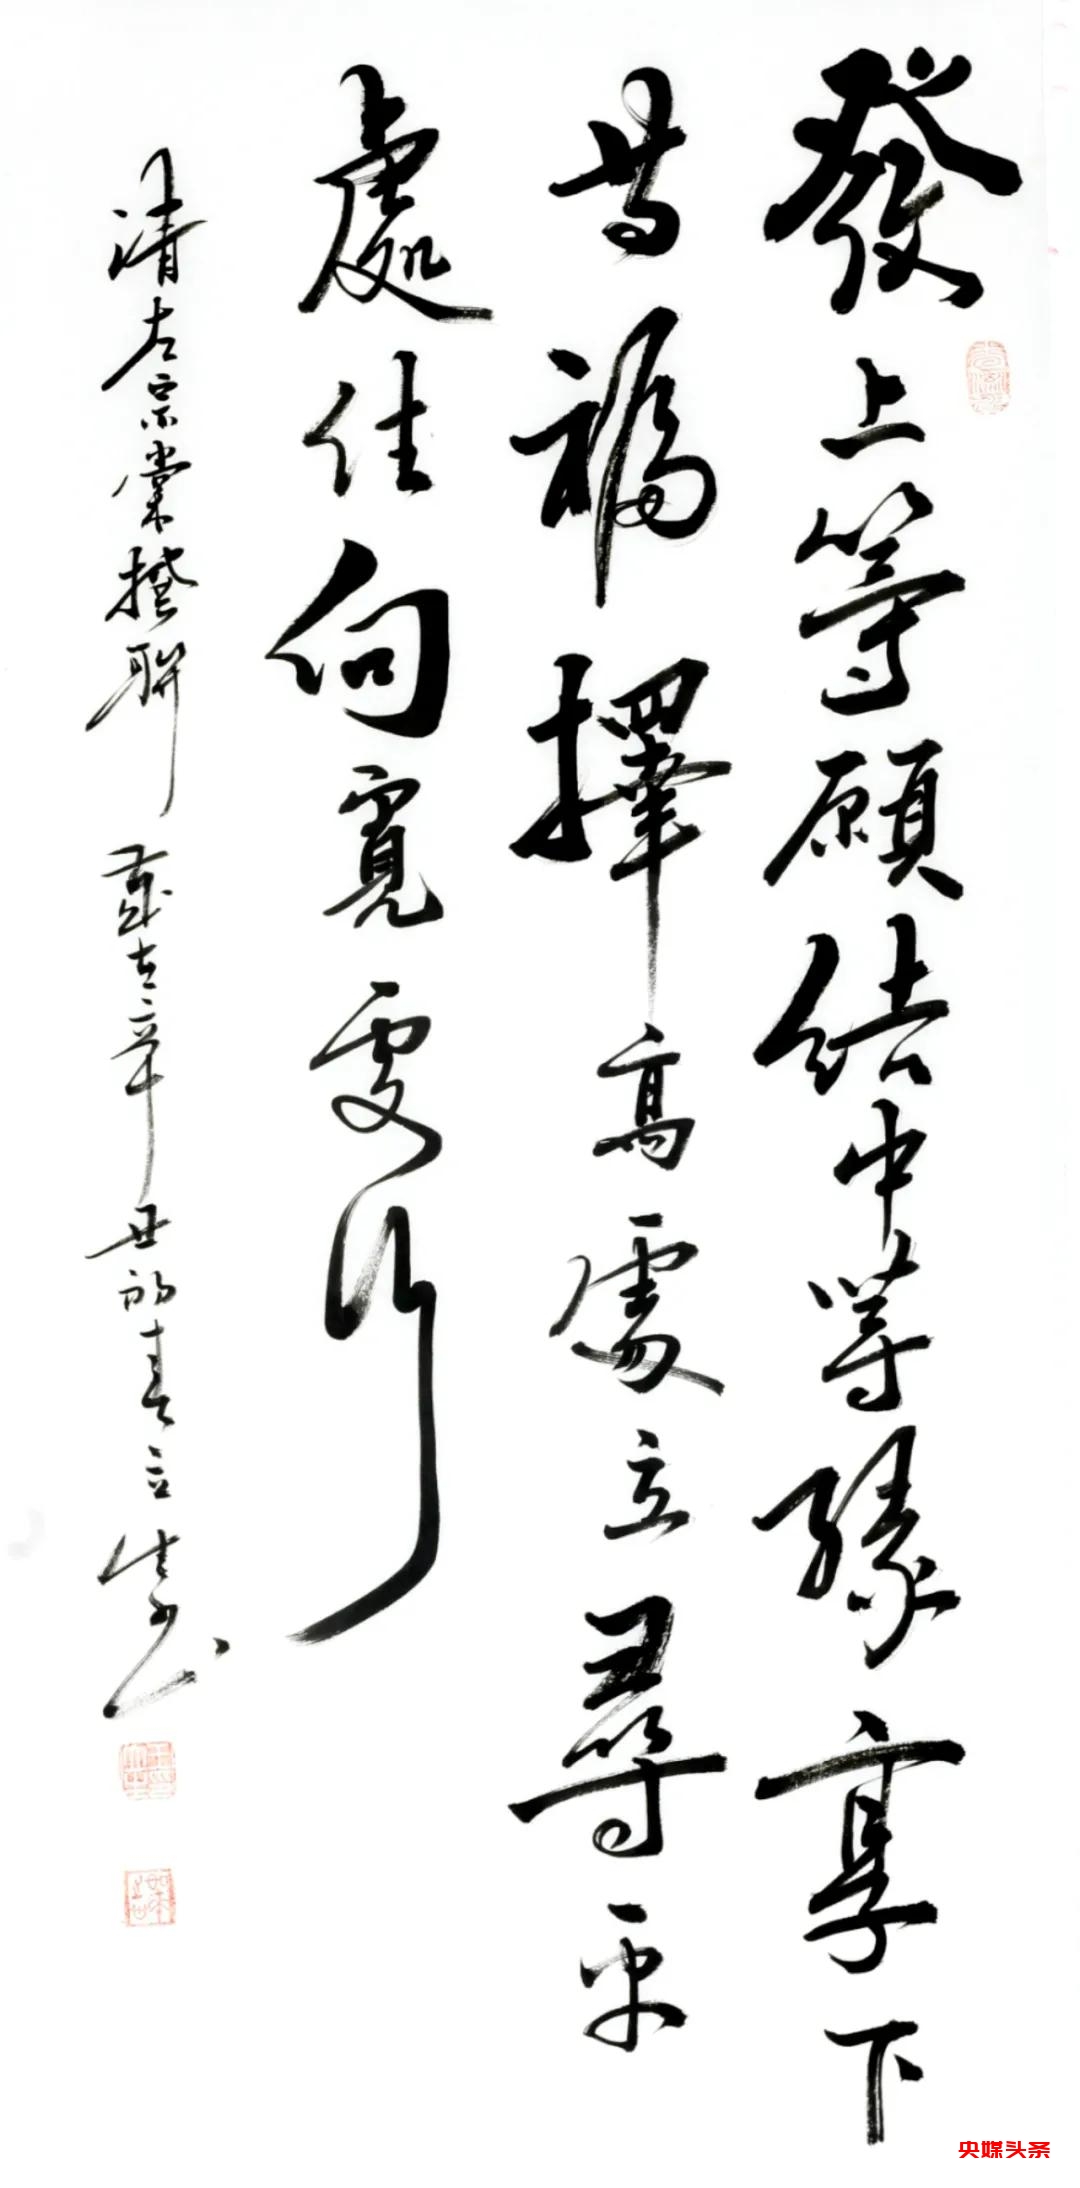 發上等願結中等緣享下
等福擇高處立尋平
處住向寬處行
清左宗棠撰聯 歲在辛丑初春立
央媒头条